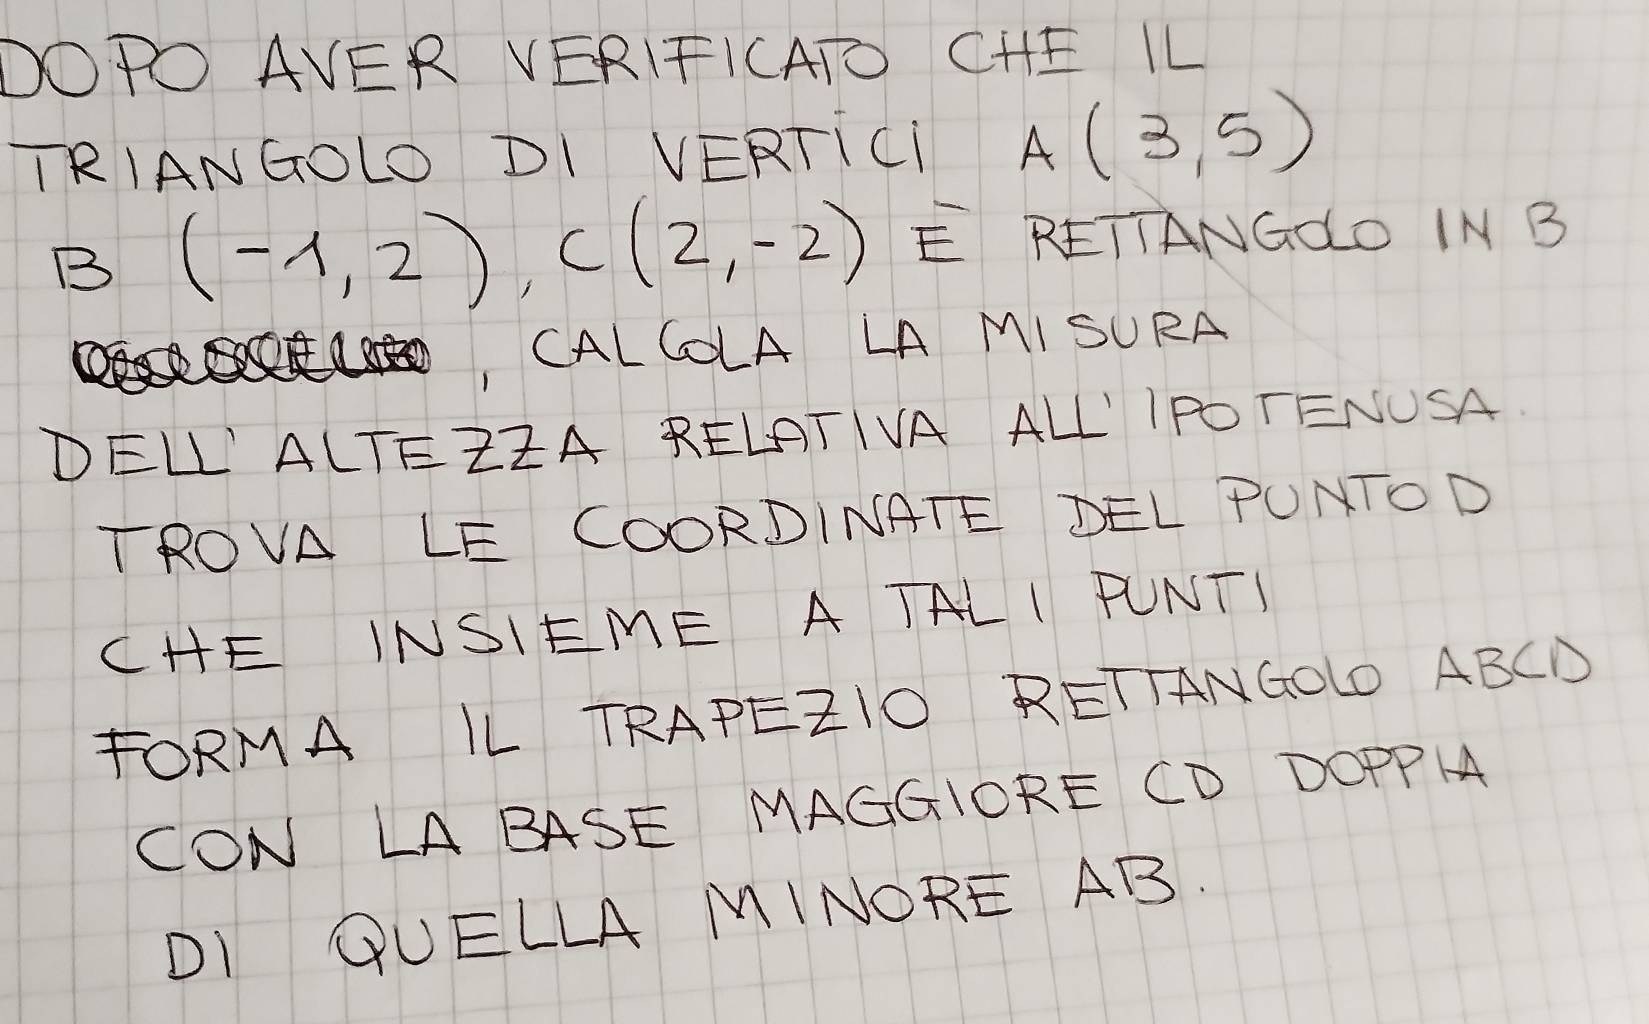 DOPO AVER VERIFICATO CHE IL
TRIANGOLO DI VERTICI A (3,5)
B (-1,2), C(2,-2) È RETTANGOLO IN B
, CALCOLA LA MISURA
DELL' ALTEZZA RELATIVA ALL' IPOTENUSA.
TROVA LE COORDINATE DEL PUNTO D
CHE INSIEME A TALI PUNTI
FORMA IL TRAPEZIO RETTANGOLO ABCD
CON LA BASE MAGGIORE CD DOPPIA
DI QUELLA MINORE AB.